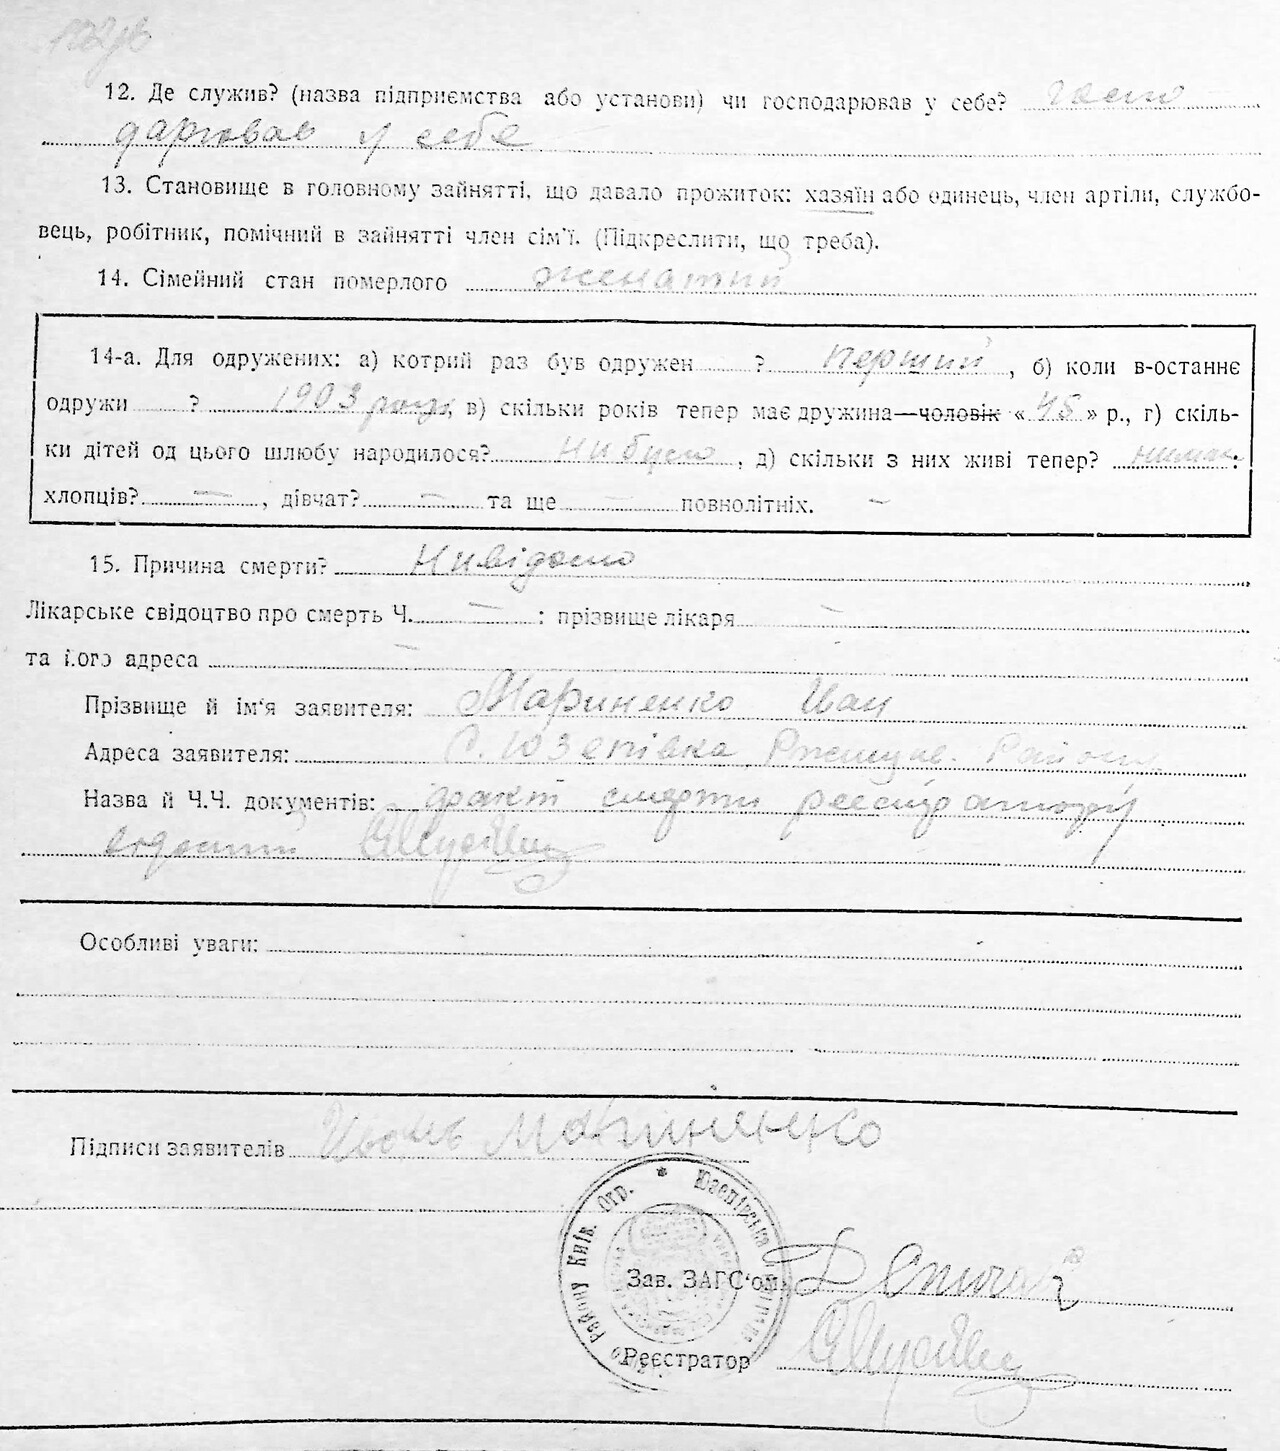 12. Де служив? (назва підприємства або установи) чи господарював у себе? госпо
дарював у себе
13. Становище в головному зайнятті, що давало прожиток: хазяїн або одинець, член артіли, службо-
вець, робітник, помічний в зайнятті член сім'ї. (Підкреслити, що треба).
14. Сімейний стан померлого женатий
14-а. Для одружених: а) котрий раз був одружен ? перший, б) коли в-останнє
одружи ? 1903 році, в) скільки років тепер має дружина—чоловік « 45 » р., г) скіль-
ки дітей од цього шлюбу народилося? ни було, д) скільки з них живі тепер? :
хлопців? —, дівчат? — та ще — повнолітніх. —
15. Причина смерти? Нивідомо
Лікарське свідоцтво про смерть Ч. — : прізвище лікаря —
та його адреса —
Прізвище й ім'я заявителя: Мариненко Иван
Адреса заявителя: С. Юзепівка Ржищів. Району
Назва й Ч.Ч. документів: факт смерти реєстратору
Особливі уваги:
Підписи заявителів Иванъ Мариненко
Району Київ. Окр. * Юзепівська
Зав. ЗАГС'ом
Реєстратор